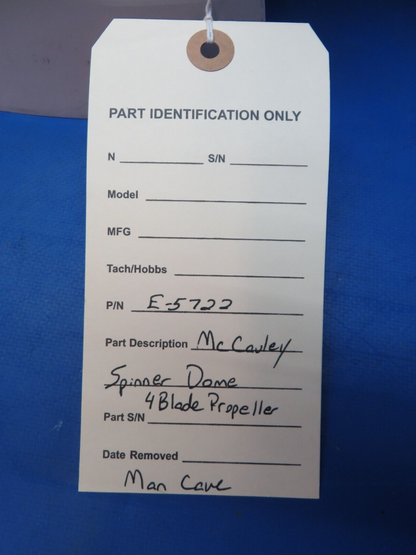 PART IDENTIFICATION ONLY
N S/N
Model
MFG
Tach/Hobbs
P/N E-5722
Part Description McCauley
Spinner Dome
4 Blade Propeller
Part S/N
Date Removed
Man Cave